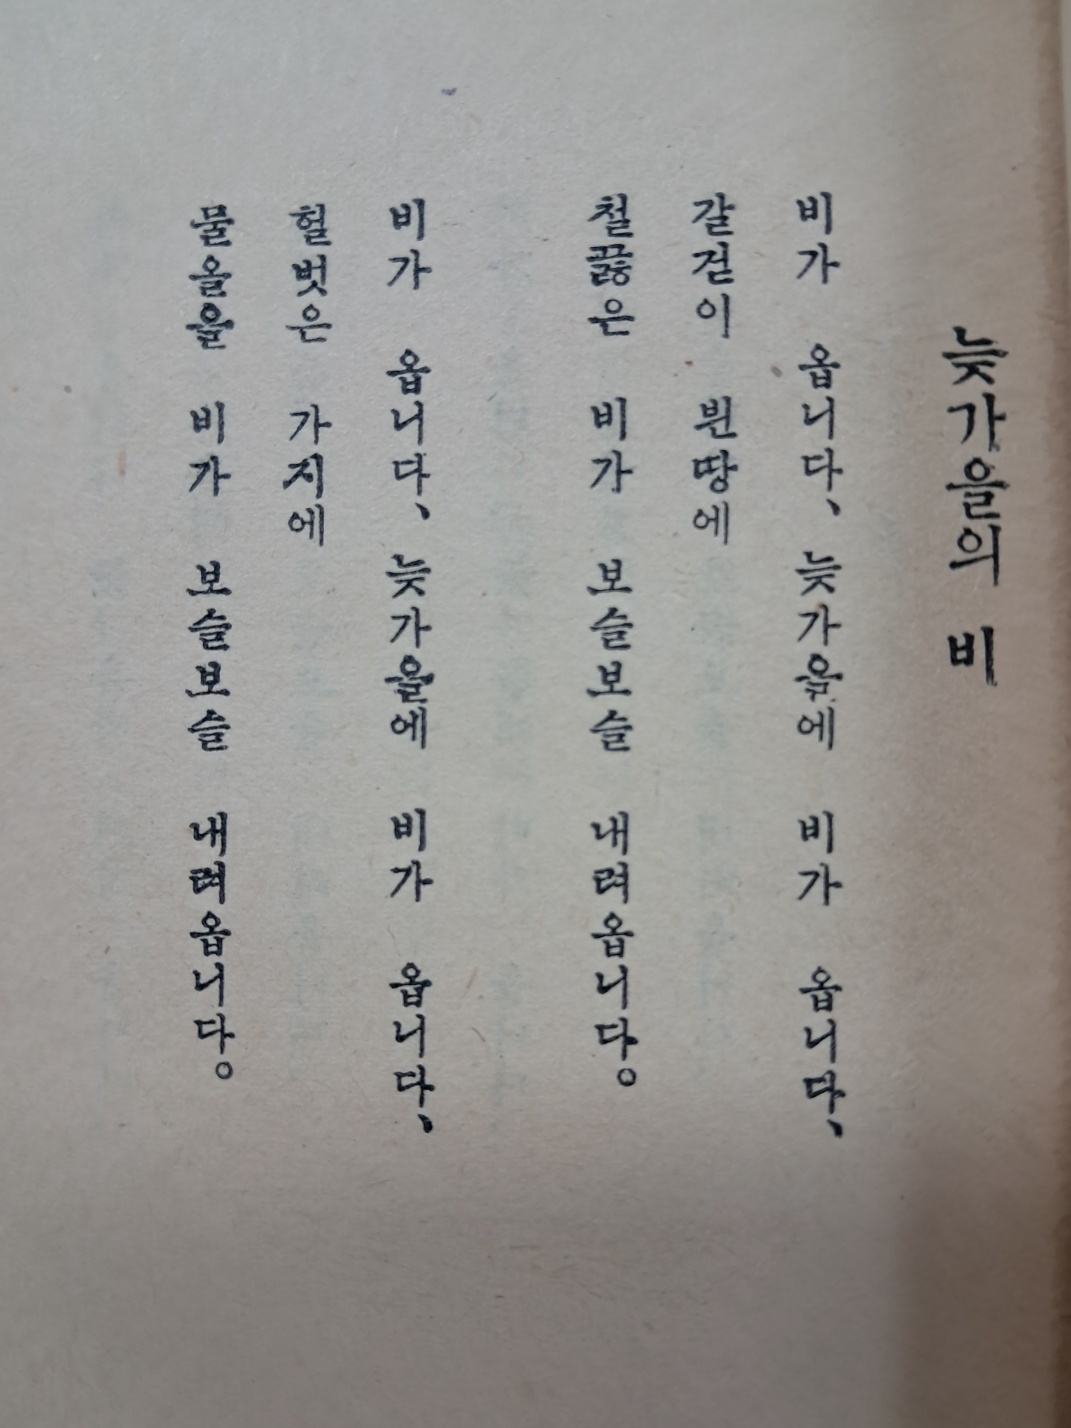 늦가을의 비
비가 옵니다、늦가을에 비가 옵니다、
갈걷이 뷘땅에
철끓은 비가 보슬보슬 내려옵니다。
비가 옵니다、늦가을에 비가 옵니다、
헐벗은 가지에
물올을 비가 보슬보슬 내려옵니다。